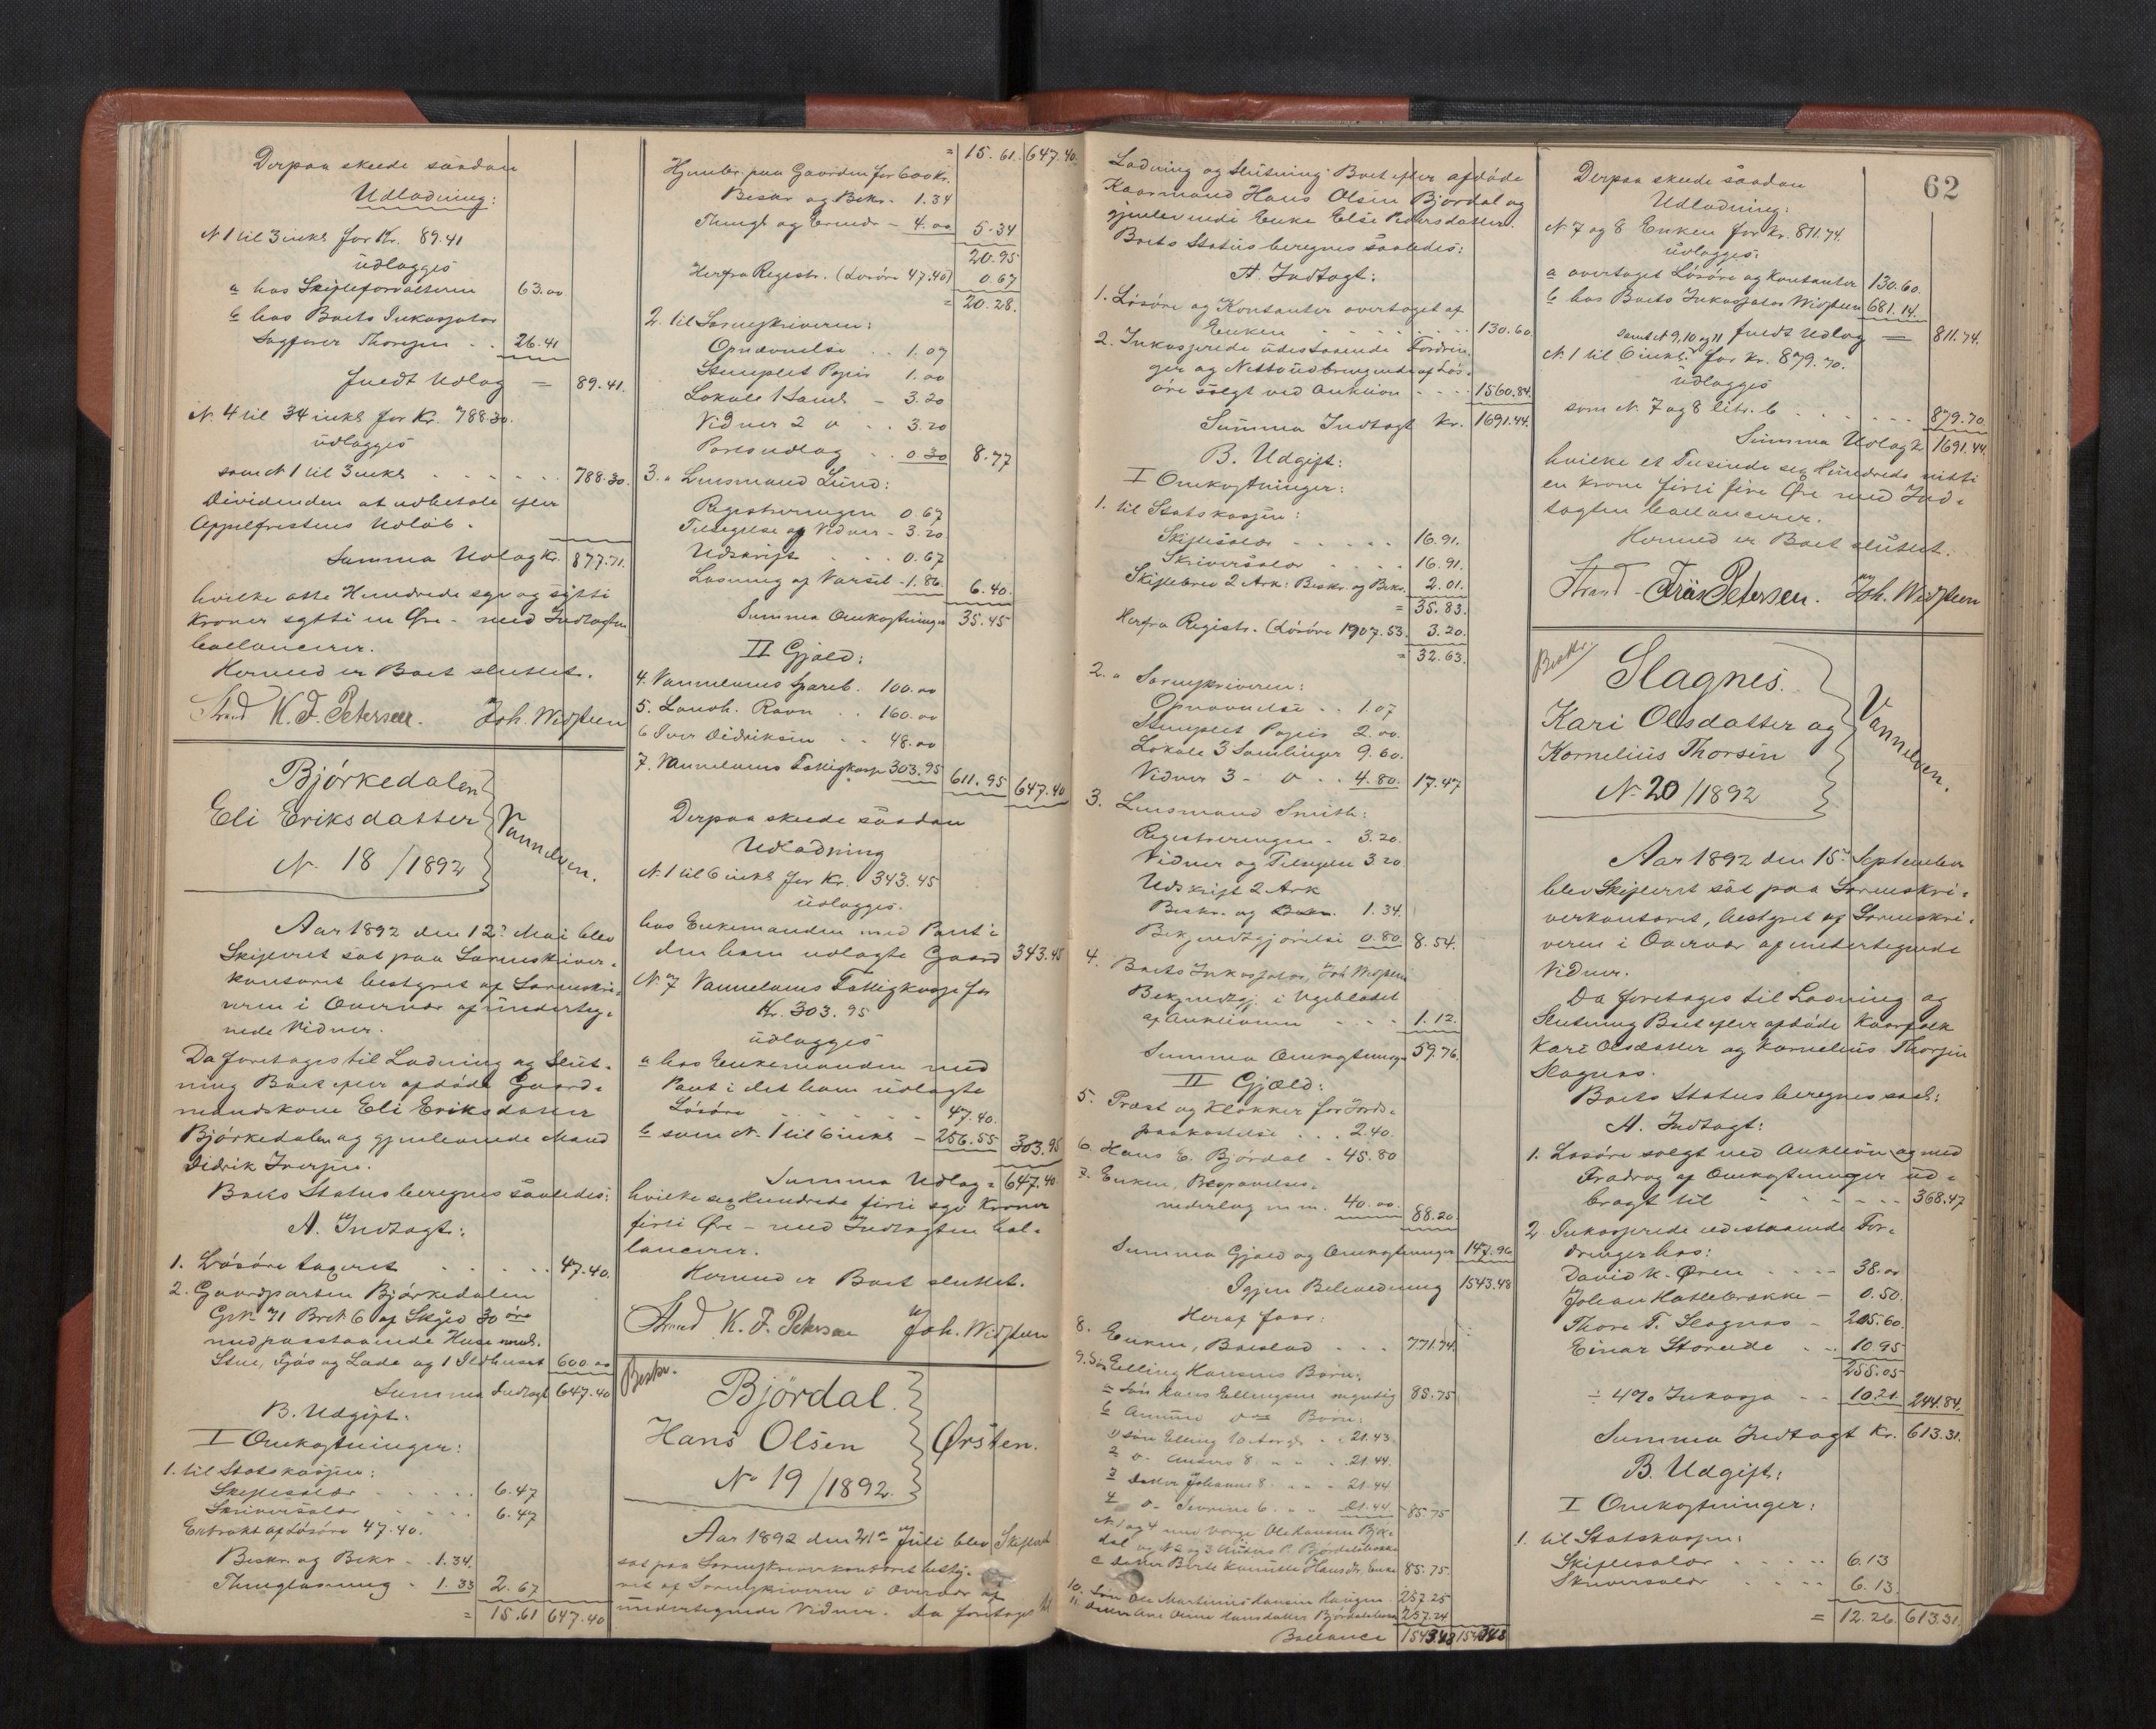 Derpaa skede saadan
Udlodning:
N. 1 til 3 inkl for Kr. 89.41
udlægges
a hos Skifteforvalteren 63.00
b hos Boets Inkassator
Sagfører Thoresen . . 26.41
fuldt Udlæg = 89.41.
N. 4 til 34 inkl for Kr. 788.30.
udlægges
som N. 1 til 3 inkl . . . . . 788.30.
Dividenden at udbetale efter
Appelfristens Udløb.
Summa Udlæg Kr. 877.71.
hvilke otte Hundrede syv og sytti
Kroner sytti en Øre - med Indtægten
ballancerer.
Hermed er Boet sluttet.
Strand K. F. Petersen. Joh. Wedsteen
Bjørkedalen
Eli Eriksdatter
N. 18/1892
Vannelven.
Aar 1892 den 12te Mai blev
Skifteret sat paa Sorenskriver-
kontoret bestyret af Sorenskri-
veren i Overvær af underteg-
nede Vidner.
Da foretages til Lodning og Slut-
ning Boet efter afdøde Gaard-
mandskone Eli Eriksdatter
Bjørkedalen og gjenlevende Mand
Didrik Iversen.
Boets Status beregnes saaledes:
A. Indtægt:
1. Løsøre taxeret . . . . . 47.40.
2. Gaardparten Bjørkedalen
Grn. 71 Brn. 6 af Skyld 30 øre
med paastaaende Huse nml.
Stue, Fjøs og Lade og 1 Ildhuset 600.00
Summa Indtægt 647.40
B. Udgift:
I Omkostninger:
1. til Statskassen:
Skiftesalær . . . . . 6.47
Skriversalær . . . . 6.47
Extrakt af Løsøre 47.40.
Beskr. og Bekr . . 1.34.
Thinglæsning . 1.33 2.67
= 15.61 647.40
= 15.61. 647.40.
Hjemler paa Gaarden for 600 Kr.
Beskr og Bekr. - 1.34
Thingl og Erindr - 4.00 5.34
20.95
Herfra Registr. (Løsøre 47.40) 0.67
= 20.28.
2. til Sorenskriveren:
Opnævnelse . . 1.07
Stemplet Papir 1.00
Lokale 1 Saml. - 3.20
Vidner 2 v . . 3.20
Portoudlæg . . 0.30 8.77
3. " Lensmand Lund:
Registreringen 0.67
Tilsigelse og Vidner - 3.20
Udskrift . . . 0.67
Læsning af Varsel - 1.86. 6.40.
Summa Omkostninger 35.45
II Gjæld:
4. Vannelvens Spareb. 100.00
5. Landh. Ravn . . 160.00
6 Iver Didriksen . . 48.00
7. Vannelvens Fattigkasse 303.95 611.95 647.40
Derpaa skede saadan
Udlodning
N. 1 til 6 inkl for Kr. 343.45
udlægges.
hos Enkemanden med Pant i
den ham udlagte Gaard 343.45
N. 7 Vannelvens Fattigkasse for
Kr. 303.95
udlægges
a hos Enkemanden med
Pant i det ham udlagte
Løsøre . . . . . 47.40.
b som N. 1 til 6 inkl - 256.55 303.95
Summa Udlæg = 647.40.
hvilke sex Hundrede firti syv Kroner
firti Øre - med Indtægten bal-
lancerer.
Hermed er Boet sluttet.
Strand K. F. Petersen Joh. Wedsteen
Beskr.
Bjørdal.
Hans Olsen
No 19/1892.
Ørsten.
Aar 1892 den 21de Juli blev Skifteret
sat paa Sorenskriverkontoret besty-
ret af Sorenskriveren i Overvær af
undertegnede Vidner. Da foretages til
62
Lodning og Slutning Boet efter afdøde
Kaarmand Hans Olsen Bjørdal og
gjenlevende Enke Else Pedersdatter.
Boets Status beregnes saaledes:
A. Indtægt:
1. Løsøre og Kontanter overtaget af
Enken . . . . . . . 130.60
2. Inkasserede udestaaende Fordrin-
ger og Nettoudbringende af Løs-
øre solgt ved Auktion . . . 1560.84.
Summa Indtægt Kr. 1691.44.
B. Udgift:
I Omkostninger:
1. til Statskassen:
Skiftesalær . . . . . 16.91.
Skriversalær . . . . 16.91.
Skiftebrev 2 Ark: Beskr og Bekr. 2.01.
= 35.83.
Herfra Registr. (Løsøre 1907.53. 3.20.
= 32.63.
2. " Sorenskriveren:
Opnævnelse . . 1.07
Stemplet Papir 2.00.
Lokale 3 Samlinger 9.60.
Vidner 3 - v . . 4.80. 17.47
3. Lensmand Smith:
Registreringen - 3.20.
Vidner og Tilsigelse 3.20
Udskrift 2 Ark
Beskr. og Bekr. 1.34.
Bekjendtgjørelse 0.80 8.54.
4. Boets Inkassator, Joh Wedsteen
Bekjendtg. i Ugebladet
af Auktionen . . . . 1.12.
Summa Omkostninger 59.76.
II Gjæld:
5. Præst og Klokker for Jords-
paakastelse . . . 2.40.
6. Hans E. Bjørdal . 45.80
7. Enken, Begravelses-
nederlag m m. 40.00. 88.20.
Summa Gjæld og Omkostninger 147.96
Igjen Beholdning 1543.48
Heraf faar:
8. Enken, Boeslod . . . 771.74.
9. Søn Elling Hansens Børn:
a Søn Hans Ellingsen myndig 85.75
b Anders Børn:
1 Søn Elling 10 Aar gl. . . 21.43.
2 v. Anders 8. " " . 21.44.
3 Datter Johanne 8. . . . 21.44
4 v. Severine 6. " " 21.44 85.75
N. 1 og 4 med Verge Ole Hansen Bjør-
dal og N. 2 og 3 Anders P. Bjørdalsbakke
c Datter Berte Hansdtr, Enke 85.75.
10. Søn Ole Martinus Hansen Haugen 257.25
11. Datter Ane Oline Hansdatter Bjørdalsbakke 257.24
Ballance 1543.48 1543.48
Derpaa skede saadan
Udlodning:
N. 7 og 8 Enken for Kr. 811.74.
udlægges:
a overtaget Løsøre og Kontanter 130.60.
b hos Boets Inkassator Wedsteen 681.14.
samt N. 9, 10 og 11 fuldt Udlæg = 811.74.
N. 1 til 6 inkl. for Kr. 879.70.
udlægges
som N. 7 og 8 litr. b . . . . . . 879.70.
Summa Udlæg K 1691.44
hvilke et Tusinde sex Hundrede nitti
en Krone firti fire Øre med Ind-
tægten ballancerer.
Hermed er Boet sluttet.
Strand - Petersen. Joh. Wedsteen
Beskr.
Slagnes.
Kari Olsdatter og
Kornelius Thorsen
N. 20/1892
Vannelven.
Aar 1892 den 15de September
blev Skifteret sat paa Sorenskri-
verkontoret, bestyret af Sorenskri-
veren i Overvær af undertegnede
Vidner.
Da foretages til Lodning og
Slutning Boet efter afdøde Kaarfolk
Kari Olsdatter og Kornelius Thorsen
Slagnes.
Boets Status beregnes saal:
A. Indtægt:
1. Løsøre solgt ved Auktion og med
Fradrag af Omkostninger ud-
bragt til . . . . . 368.47
2. Inkasserede udestaaende For-
dringer hos:
David K. Øren . . . . 38.00
Johan Hatlebrække - 0.50.
Thore T. Slagnes - 205.60.
Einar Storeide . . 10.95
255.05
÷ 4% Inkasso - - 10.21 244.84.
Summa Indtægt Kr. 613.31.
B. Udgift:
I Omkostninger:
1. til Statskassen:
Skiftesalær . . . . . 6.13
Skriversalær . . . . 6.13.
= 12.26. 613.31.